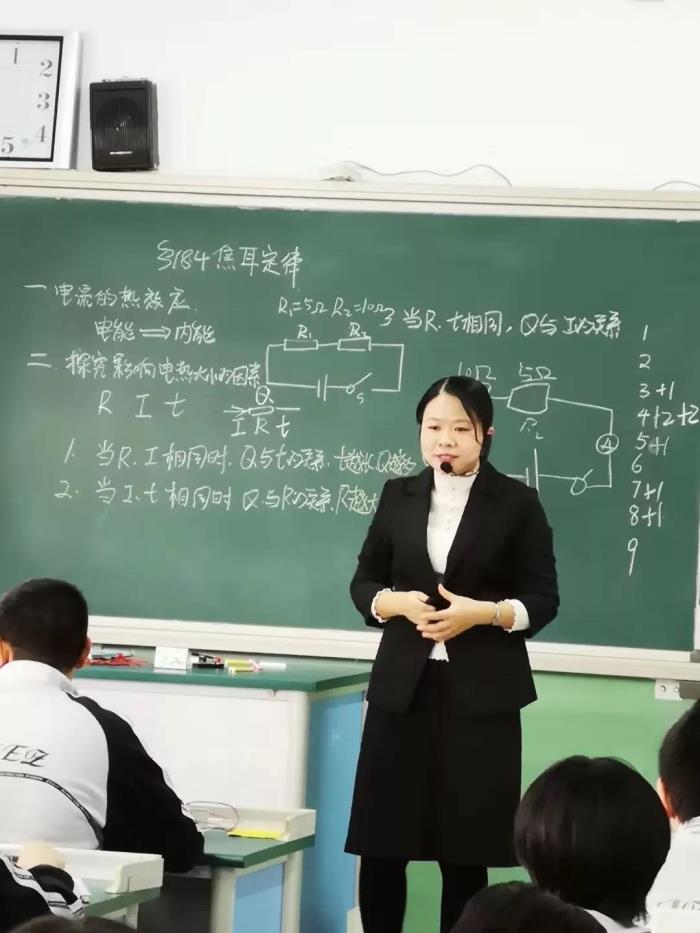 1
2
3
4
5
§18.4 焦耳定律
一 电流的热效应
电能 ⟹ 内能
二 探究影响电热大小的因素
R I t
Q
I R t
1. 当R、I相同时,Q与t的关系, t越长,Q越多
2. 当I、t相同时 Q与R的关系,R越大
R₁=5Ω R₂=10Ω
R₁ R₂
S
3 当R、t相同,Q与I的关系
10Ω 5Ω
R₂
A
1
2
3+1
4+2+2
5+1
6
7+1
8+1
9
EZ